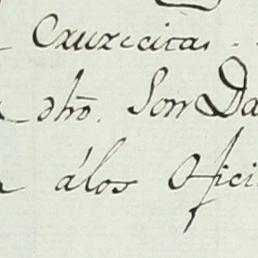 Cruzecitas.
dho. Son Da
álos Ofici